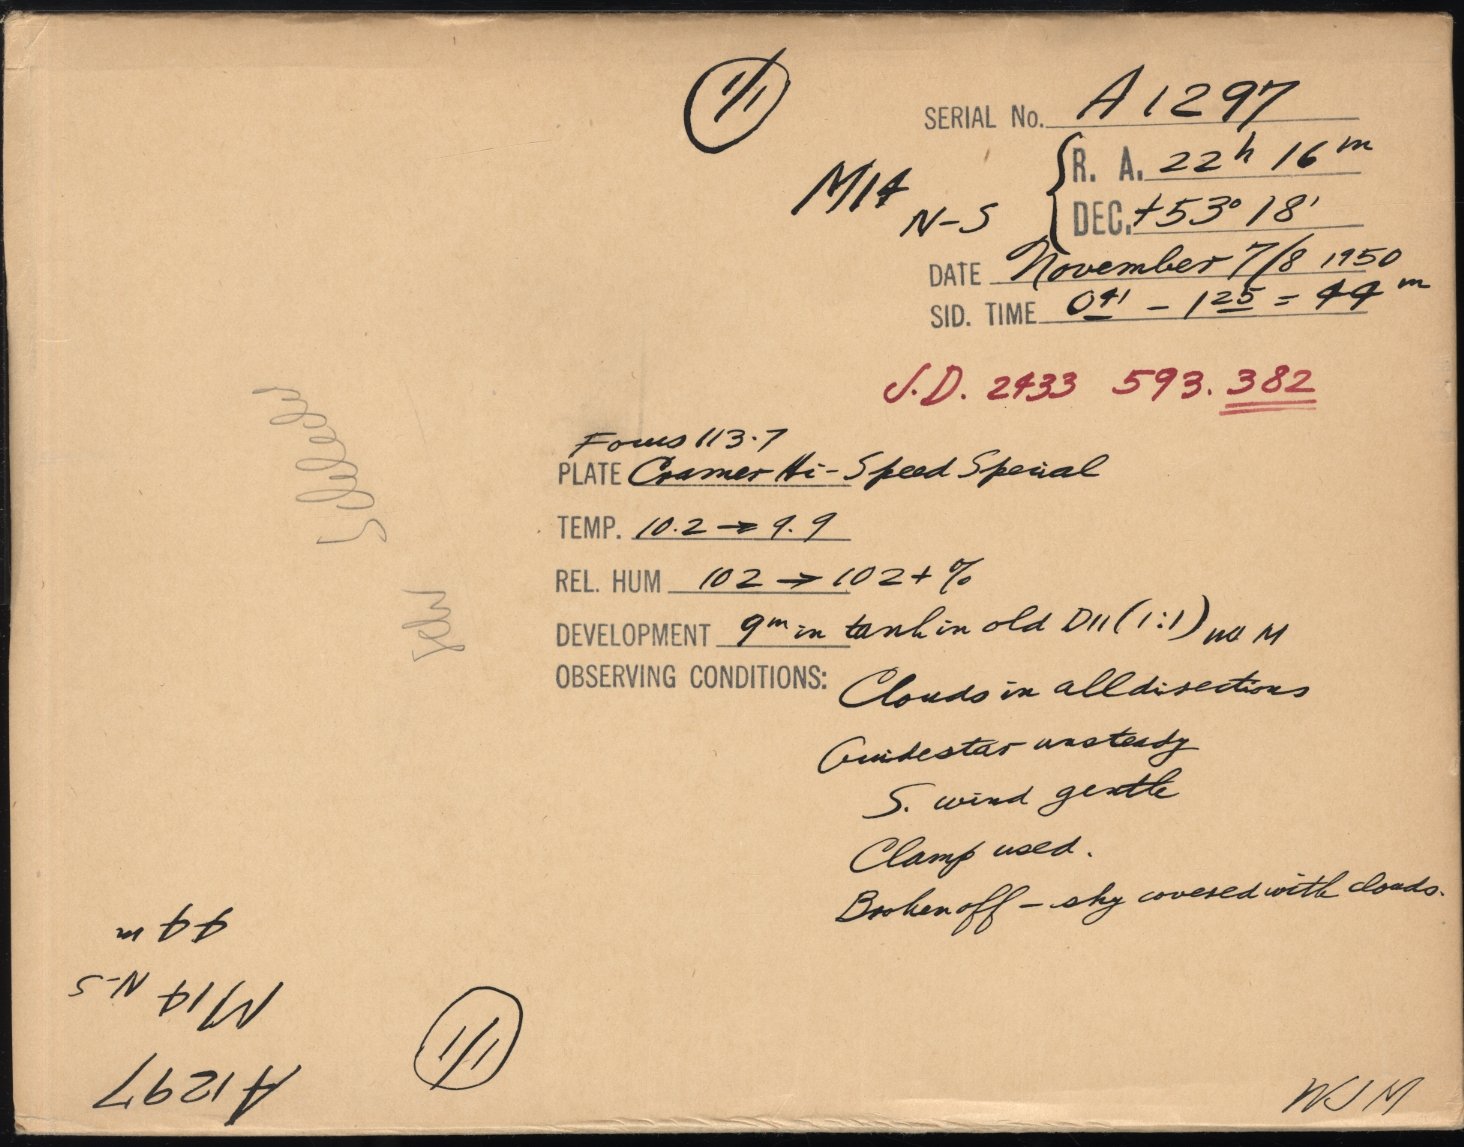 1/1
SERIAL No. A 1297
M14 N-S
R. A. 22h 16m
DEC. +53° 18'
DATE November 7/8 1950
SID. TIME 0 41 - 1 25 = 44 m
J.D. 2433 593.382
Focus 113.7
PLATE Cramer Hi-Speed Special
TEMP. 10.2 → 9.9
REL. HUM 102 → 102+ %
DEVELOPMENT 9m in tank in old D11 (1:1) no M
OBSERVING CONDITIONS: Clouds in all directions
Guidestar unsteady
S. wind gentle
Clamp used.
Broken off - sky covered with clouds.
44 m
M14 N-S
A1297
1/1
WJM